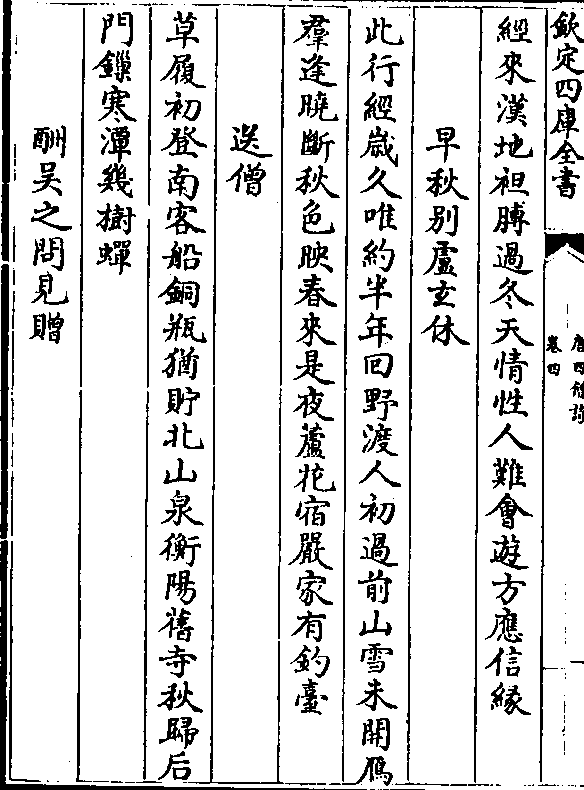 欽定四庫全書
唐四僧詩
卷四
經來漢地袒膊過冬天情性人難會遊方應信緣
早秋別盧玄休
此行經嵗久唯約半年回野渡人初過前山雪未開鴈
羣逢曉斷秋色映春來是夜蘆花宿嚴家有釣臺
送僧
草履初登南客船銅瓶猶貯北山泉衡陽舊寺秋歸后
門鏁寒潭幾樹蟬
酬吴之問見贈